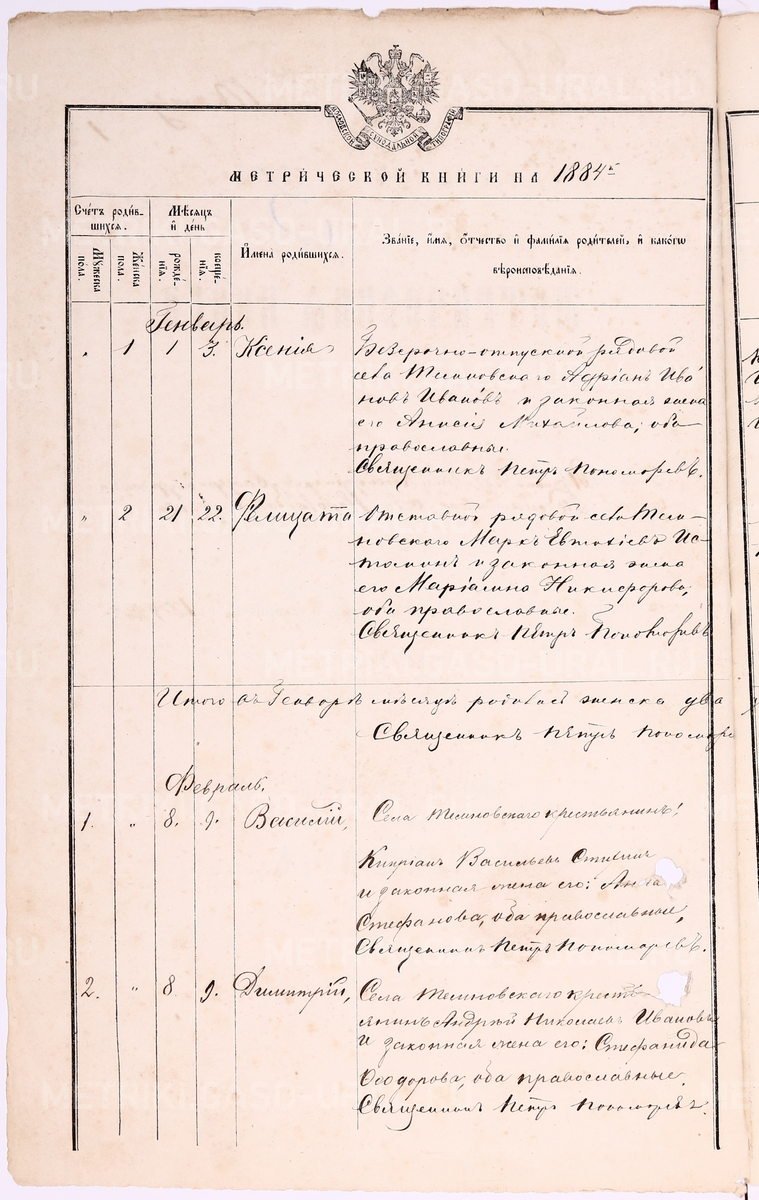 МОСКОВСКОЙ СИНОДАЛЬНОЙ ТИПОГРАФІИ
МЕТРИ́ЧЕСКОЙ КНИ́ГИ НА 1884 г.
Сче́тъ роди́в-
шихся.
Мꙋжеска
пола.
Же́нска
пола.
Мѣ́сяцъ
и҆ де́нь
рожде́-
нїѧ.
креще́-
нїѧ.
И҆мена роди́вшихсѧ.
Зва́нїе, и҆́мѧ, ѻ҆́тчество и҆ фамилїѧ роди́телей, и҆ како́гѡ
вѣроисповѣ́данїѧ.
Генварь.
" 1 1 3. Ксенія
Безсрочно-отпускной рядовой
села Адріанъ Ива-
новъ Ивановъ и законная жена
его Анисія Михайлова, оба
православные.
Священникъ Петръ Пономаревъ.
" 2 21 22. Фелицата
Отставной рядовой села
Маркъ Евтихіевъ Ис-
томинъ и законная жена
его Маріамна Никифорова,
оба православные.
Священникъ Петръ Пономаревъ
Итого въ Генварѣ мѣсяцѣ родилось женска два
Священникъ Петръ Пономаре
Февраль.
1. " 8. 9. Василій,
Села крестьянинъ:
Кипріанъ Васильевъ
и законная жена его: Анна
Стефанова, оба православные,
Священникъ Петръ Пономаревъ.
2. " 8 9. Димитрій,
Села кресть-
янинъ Андрей Николаевъ Ивановъ
и законная жена его: Стефанида
Ѳеодорова, оба православные.
Священникъ Петръ Пономаревъ.